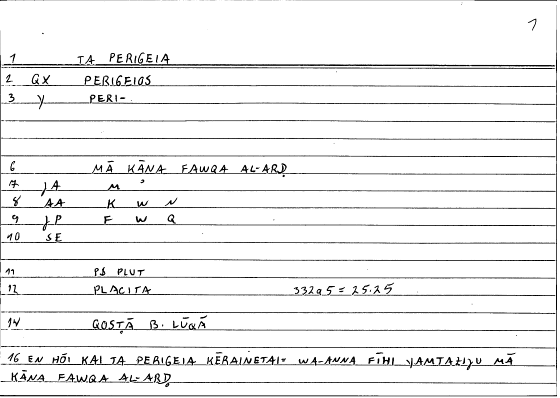 1
1 TA PERIGEIA
2 QX PERIGEIOS
3 y PERI-
6 MĀ KĀNA FAWQA AL-ARḌ
7 jA M ʾ
8 AA K W N
9 jP F W Q
10 SE
11 PS PLUT
12 PLACITA 332a5 = 25.25
14 QOSṬĀ B. LŪQĀ
16 EN HŌI KAI TA PERIGEIA KĒRAINETAI= WA-ANNA FĪHI MĀ
KĀNA FAWQA AL-ARḌ